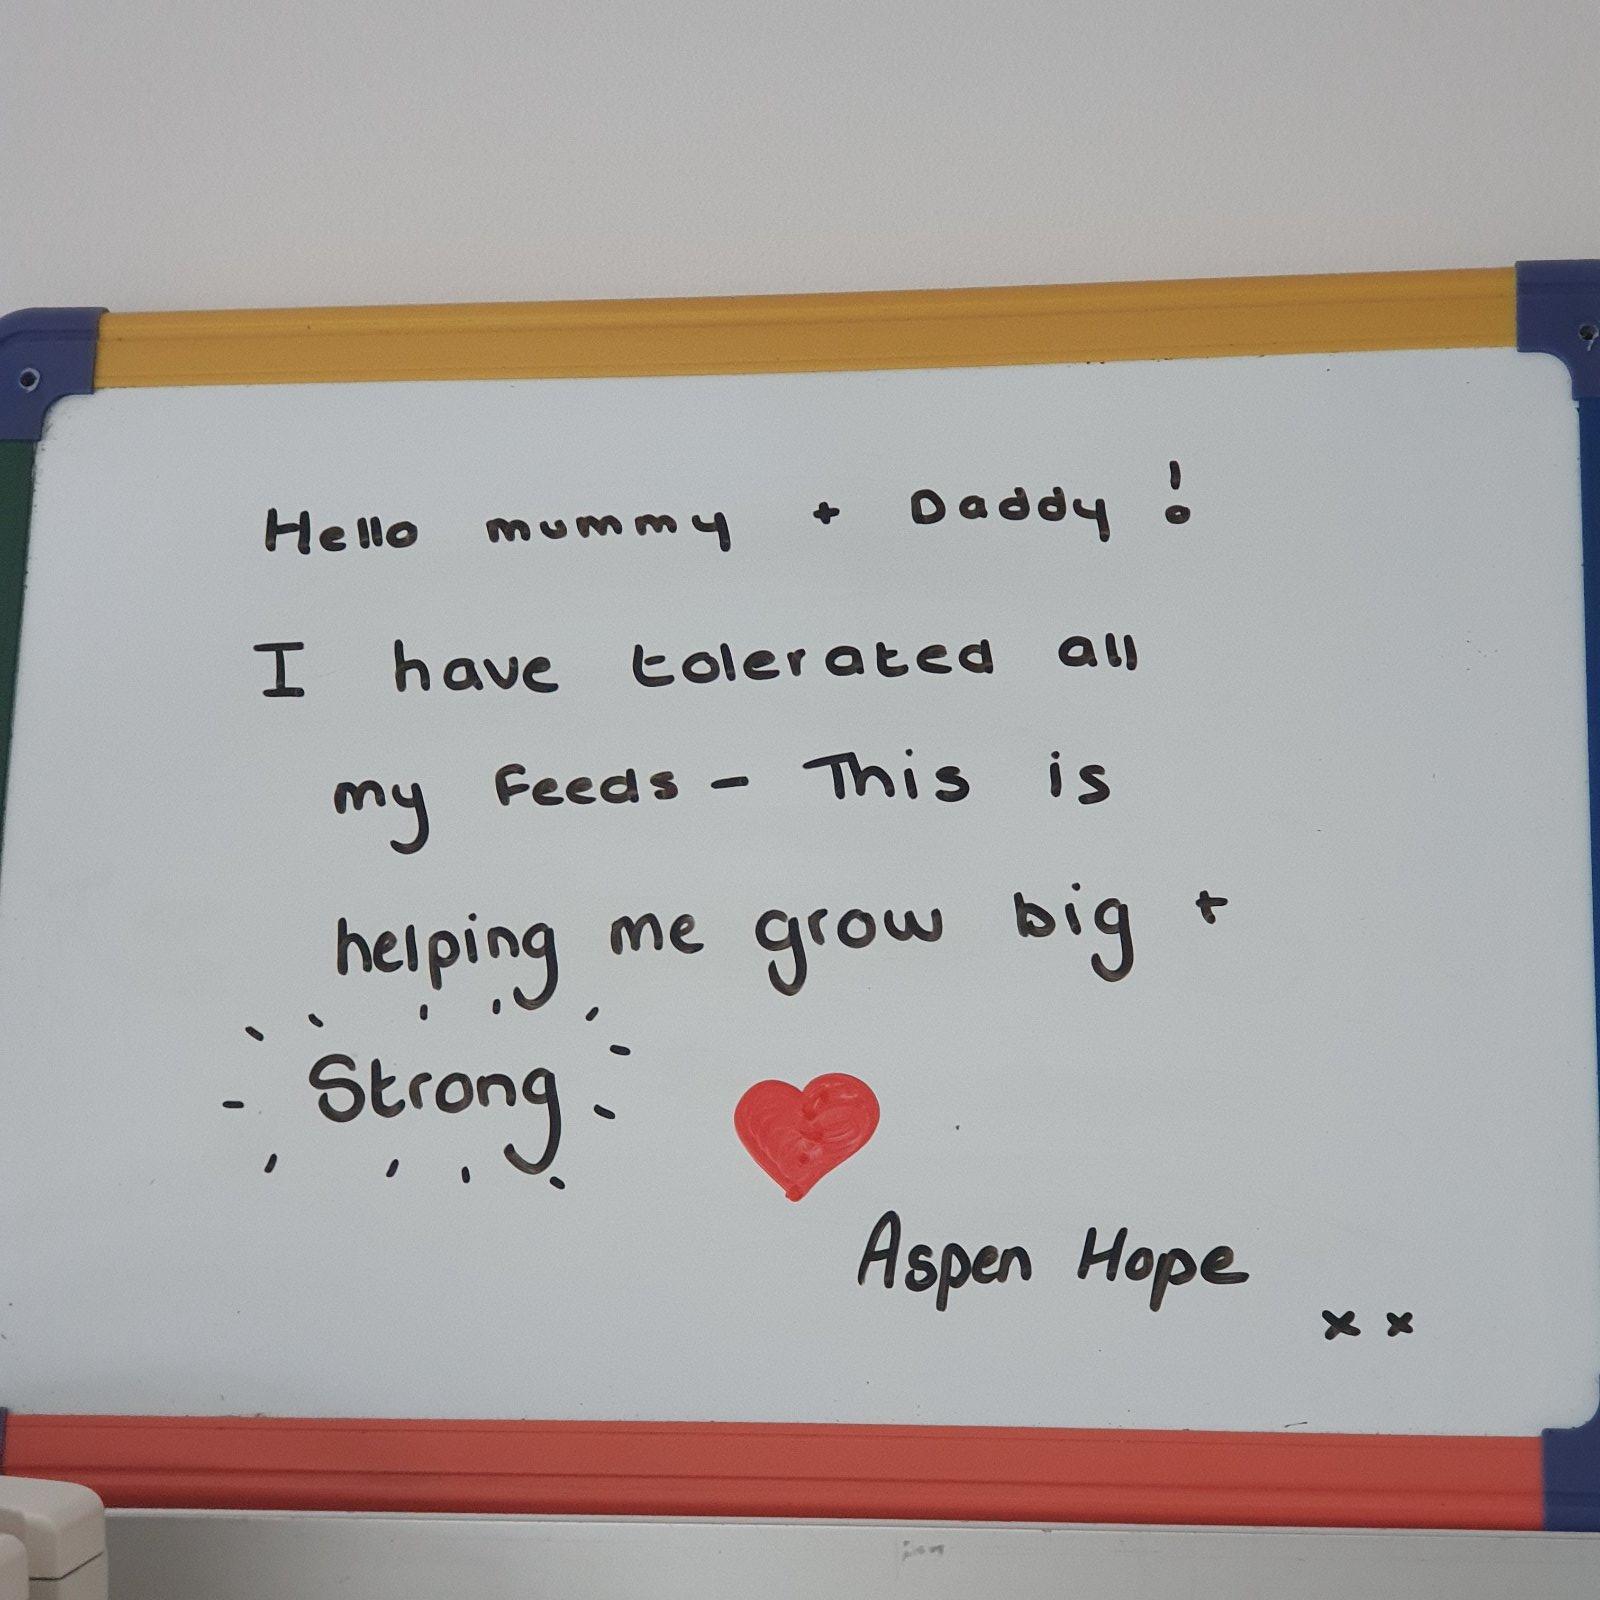 Hello mummy + Daddy !
I have tolerated all
my Feeds - This is
helping me grow big +
Strong
Aspen Hope
x x